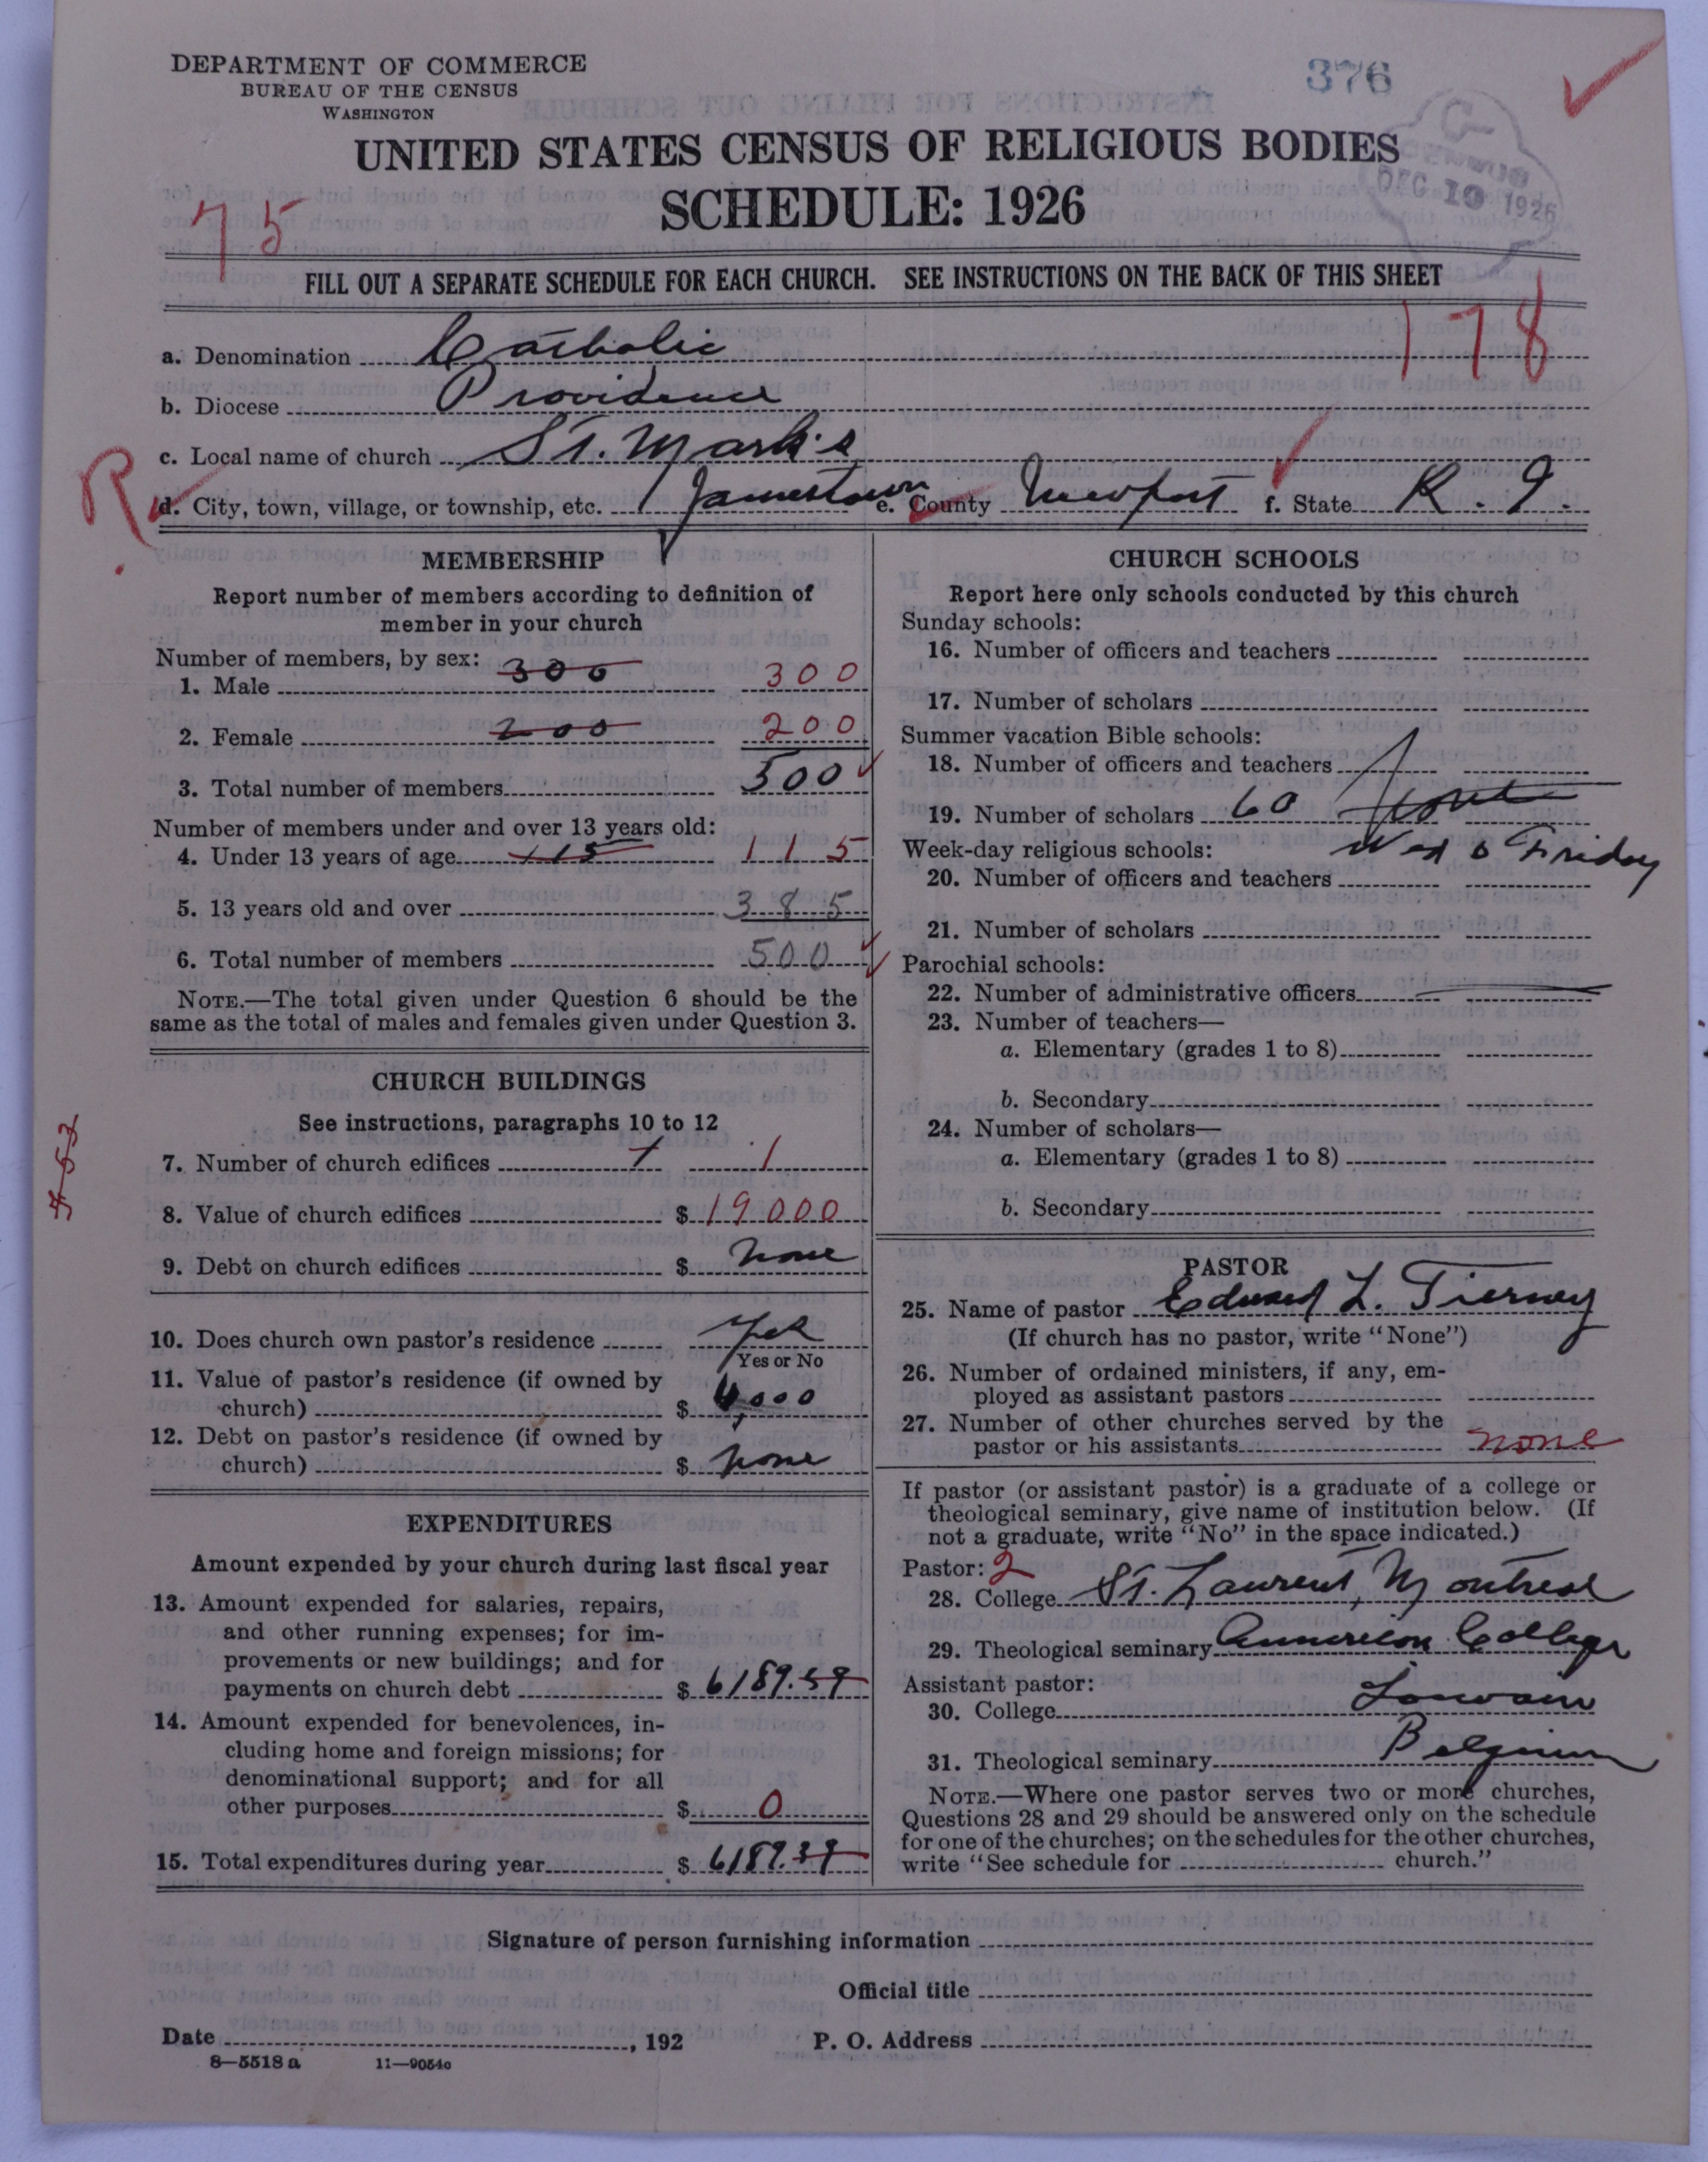 DEPARTMENT OF COMMERCE
BUREAU OF THE CENSUS
WASHINGTON
376
UNITED STATES CENSUS OF RELIGIOUS BODIES
SCHEDULE: 1926
CENSUS
DEC 10 1926
75
FILL OUT A SEPARATE SCHEDULE FOR EACH CHURCH. SEE INSTRUCTIONS ON THE BACK OF THIS SHEET
178
a. Denomination Catholic
b. Diocese Providence
c. Local name of church St. Mark's
R
d. City, town, village, or township, etc. Jamestown e. County Newport f. State R. I.
MEMBERSHIP
Report number of members according to definition of
member in your church
Number of members, by sex:
1. Male 300 300
2. Female 200 200
3. Total number of members 500
Number of members under and over 13 years old:
4. Under 13 years of age 115 115
5. 13 years old and over 385
6. Total number of members 500
NOTE.—The total given under Question 6 should be the
same as the total of males and females given under Question 3.
CHURCH BUILDINGS
See instructions, paragraphs 10 to 12
7. Number of church edifices 1 1
8. Value of church edifices $ 19000
9. Debt on church edifices $ none
10. Does church own pastor's residence Yes
Yes or No
11. Value of pastor's residence (if owned by
church) $ 4,000
12. Debt on pastor's residence (if owned by
church) $ none
EXPENDITURES
Amount expended by your church during last fiscal year
13. Amount expended for salaries, repairs,
and other running expenses; for im-
provements or new buildings; and for
payments on church debt $ 6189.
14. Amount expended for benevolences, in-
cluding home and foreign missions; for
denominational support; and for all
other purposes $ 0
15. Total expenditures during year $ 6189.
CHURCH SCHOOLS
Report here only schools conducted by this church
Sunday schools:
16. Number of officers and teachers
17. Number of scholars
Summer vacation Bible schools:
18. Number of officers and teachers
19. Number of scholars 60
Week-day religious schools: Wed & Friday
20. Number of officers and teachers
21. Number of scholars
Parochial schools:
22. Number of administrative officers
23. Number of teachers—
a. Elementary (grades 1 to 8)
b. Secondary
24. Number of scholars—
a. Elementary (grades 1 to 8)
b. Secondary
PASTOR
25. Name of pastor Edward L. Tierney
(If church has no pastor, write "None")
26. Number of ordained ministers, if any, em-
ployed as assistant pastors
27. Number of other churches served by the
pastor or his assistants none
If pastor (or assistant pastor) is a graduate of a college or
theological seminary, give name of institution below. (If
not a graduate, write "No" in the space indicated.)
Pastor: 2
28. College St. Laurent, Montreal
29. Theological seminary American College
Assistant pastor:
30. College Louvain
31. Theological seminary Belgium
NOTE.—Where one pastor serves two or more churches,
Questions 28 and 29 should be answered only on the schedule
for one of the churches; on the schedules for the other churches,
write "See schedule for church."
Signature of person furnishing information
Official title
Date , 192 P. O. Address
8—5518 a 11—9054c